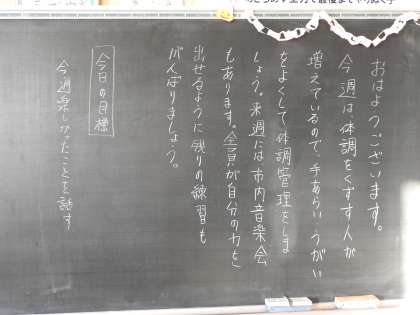 おはようございます。
今週は、体調をくずす人が
増えているので、手あらい、うがい
をよくして体調管理をしま
しょう。来週には市内音楽会
もあります。全員が自分の力を
出せるように残りの練習も
がんばりましょう。
今日の目標
今週楽しかったことを話す